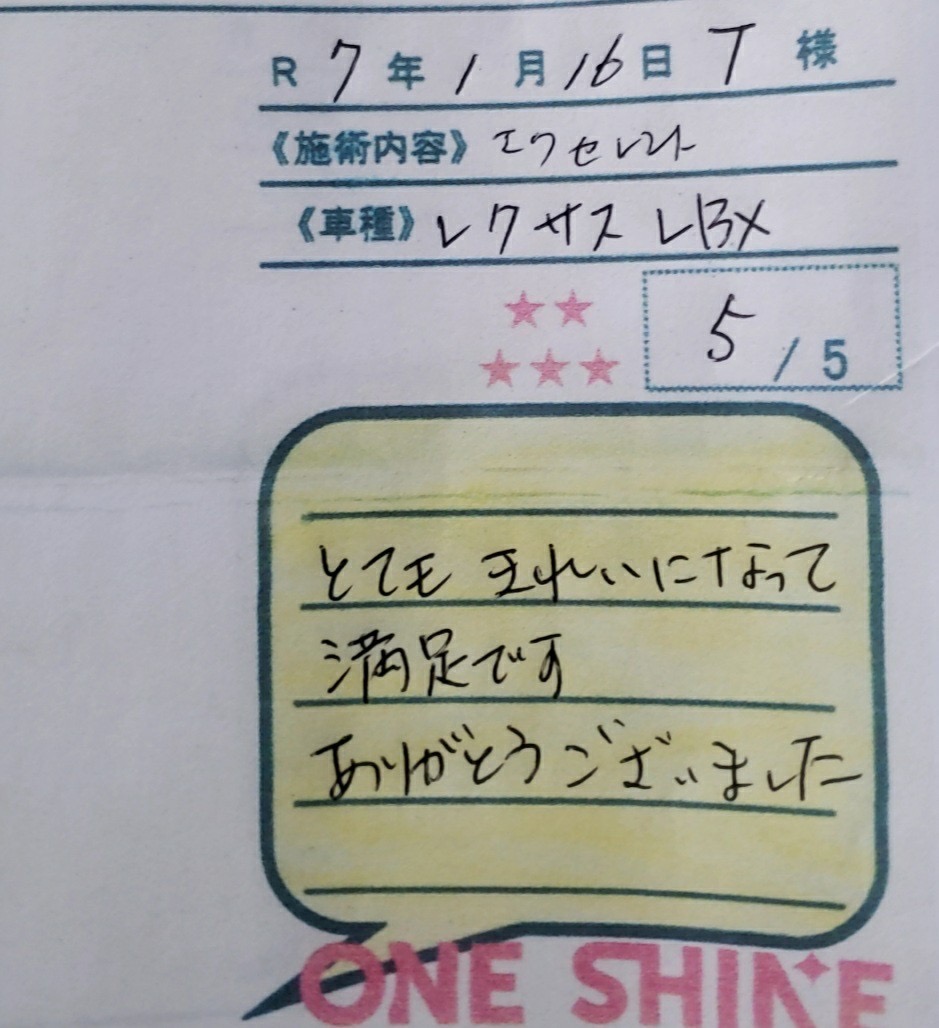 R 7 年 1 月 16 日 T 様
《施術内容》 エクセレント
《車種》 レクサス LBX
★★
★★★
5 / 5
とても きれいになって
満足です
ありがとうございました
ONE SHINE